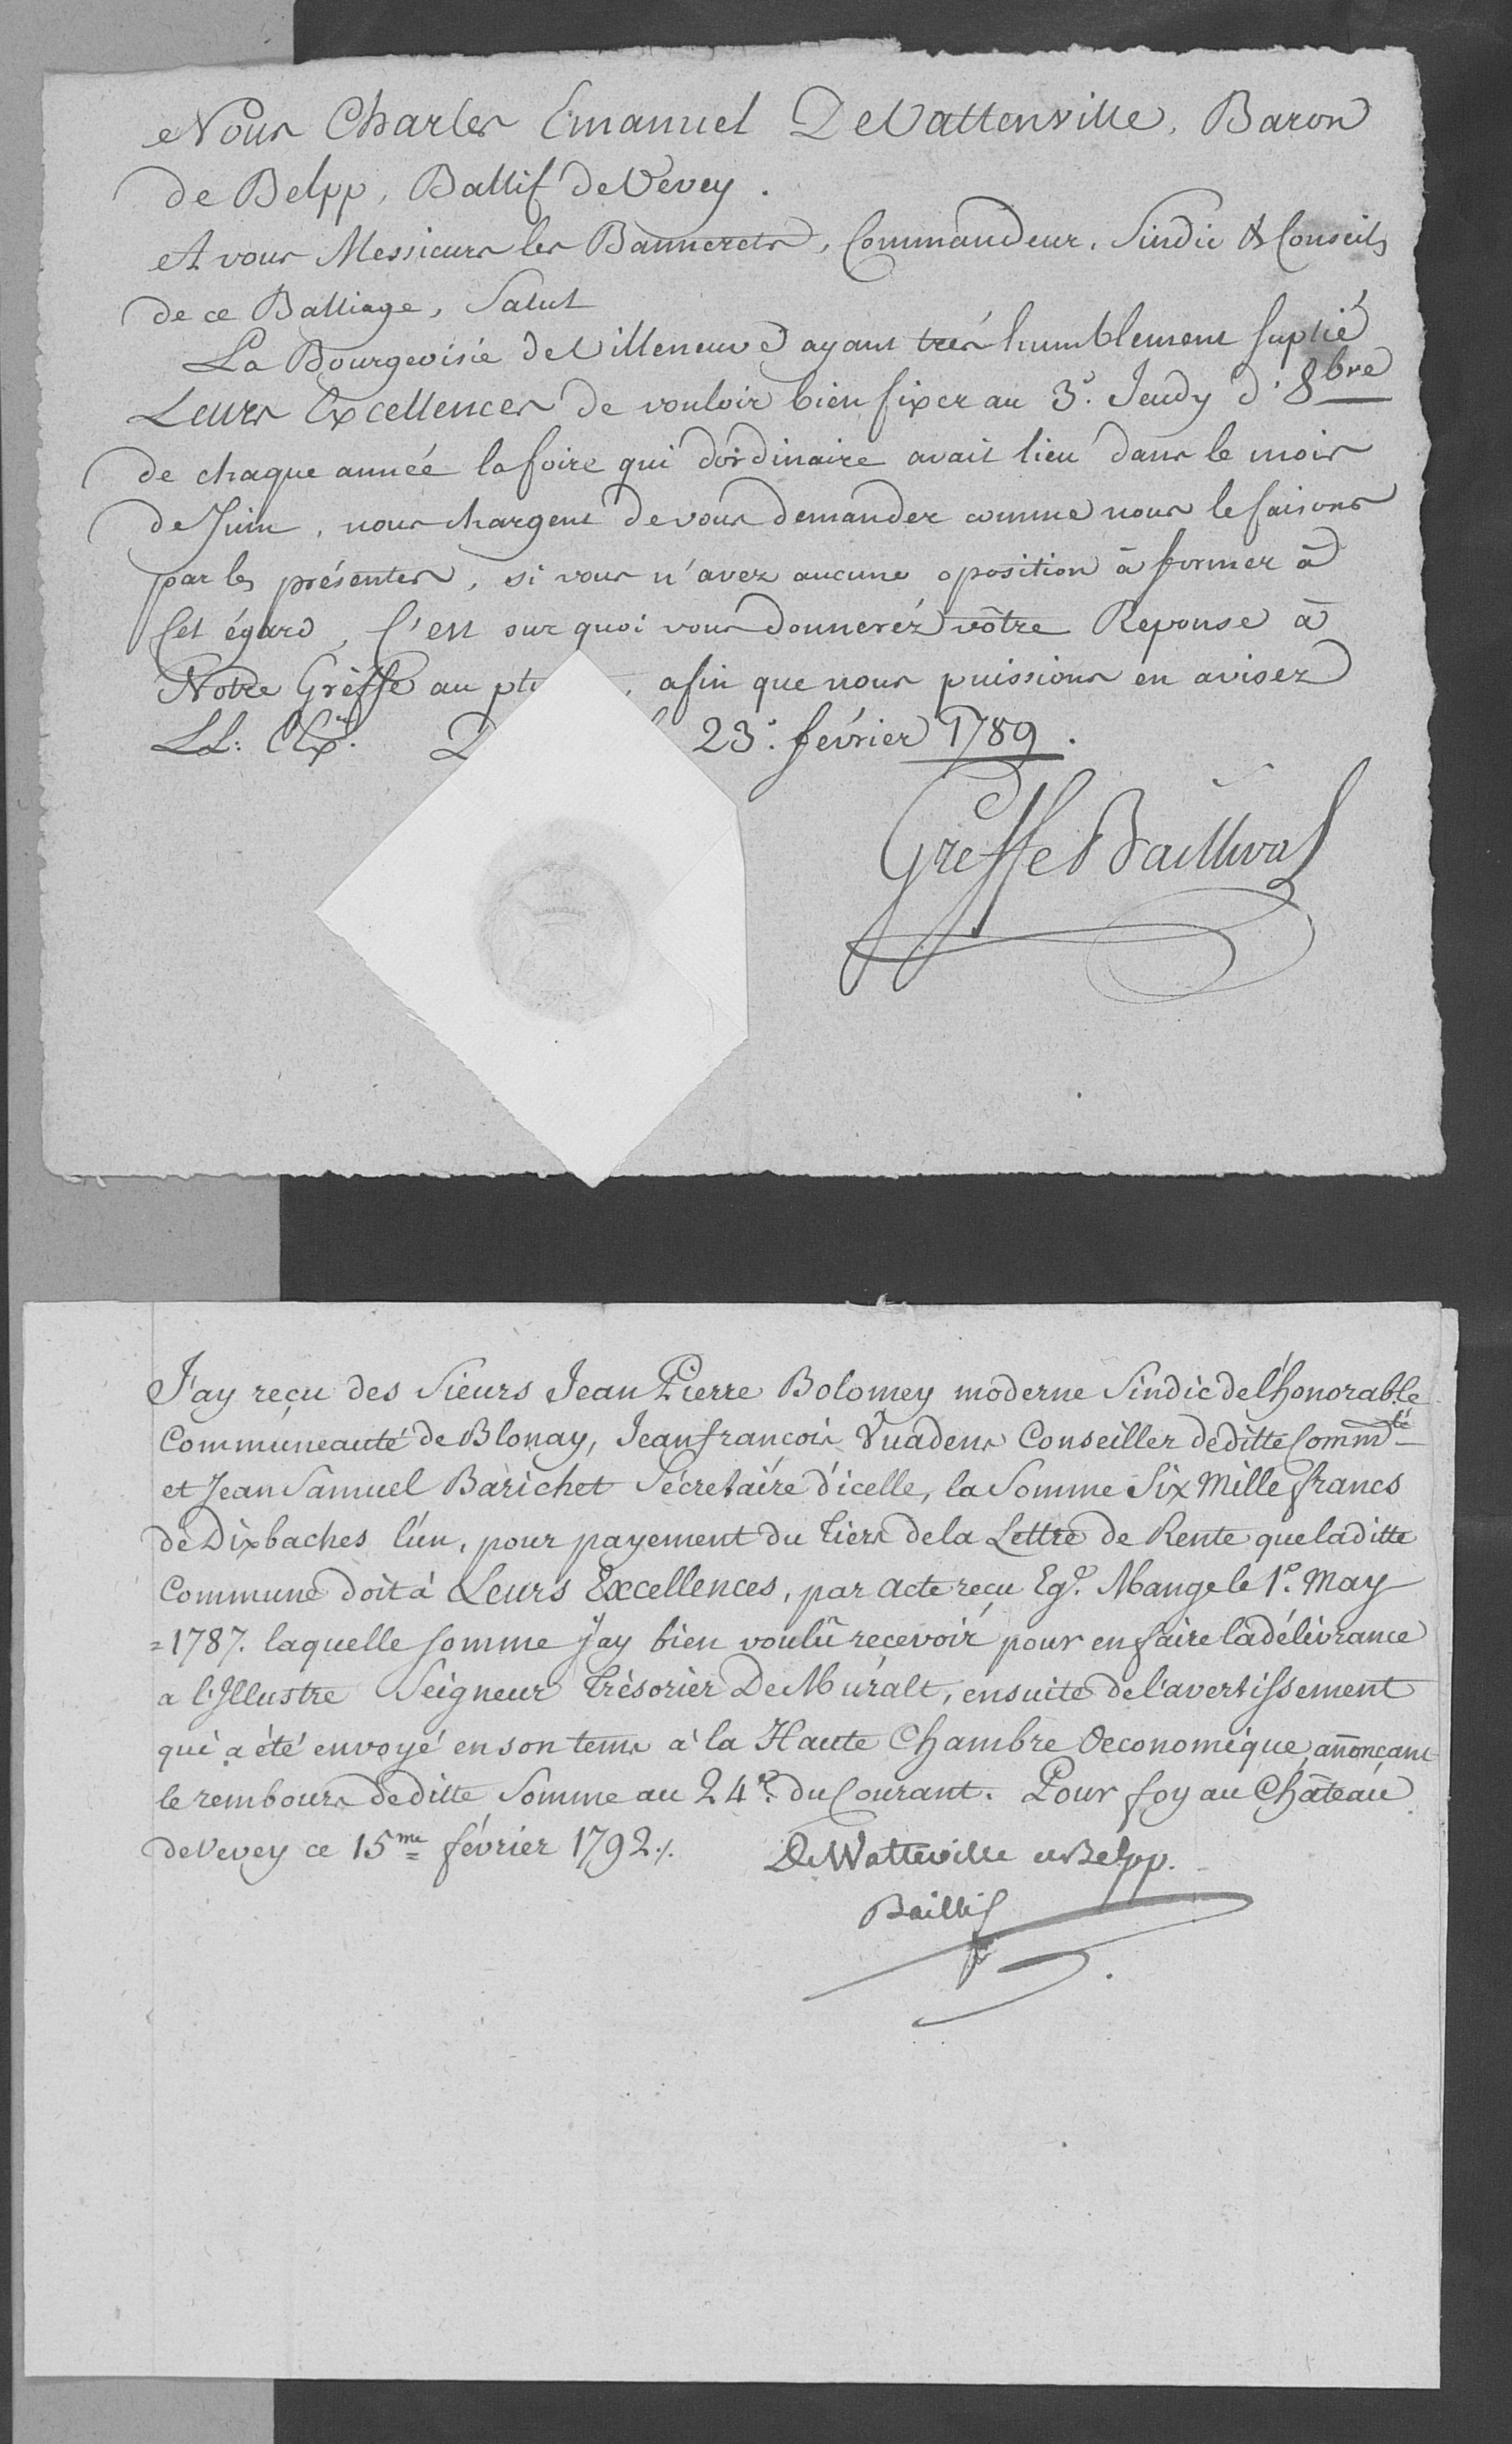 Nous Charles Emanuel DeVattenville, Baron
de Belpp, Ballif de Vevey.
A vous Messieurs les Bannerets, Commandeur, Sindic & Conseils
de ce Balliage, Salut
La Bourgeoisie de Villeneuve ayant trés humblement suplié
Leurs Excellences de vouloir bien fixer au 3e. Jeudy d'8bre
de chaque année la foire qui dordinaire avait lieu dans le mois
de Juin, nous chargent de vous demander comme nous le faisons
par les présentes, si vous n'avez aucune oposition à former à
Cet égard, C'est sur quoi vous donneréz vôtre Reponse à
Notre Gréffe au plu , afin que nous puissions en avisez
LL: Exces. D 23e. février 1789.
Greffe Baillival
J'ay reçu des Sieurs Jean Pierre Bolomey moderne Sindic de l'honorable
Communeauté de Blonay, Jean françois Vuadens Conseiller de ditte Commté
et Jean Samuel Barichet Sécretaire d'icelle, la Somme Six Mille francs
de Dix baches l'un, pour payement du tiers de la Lettre de Rente que la ditte
Commune doit à Leurs Excellences, par acte reçu Eg.e Mange le 1e. May
=1787. laquelle somme j'ay bien voulû recevoir pour en faire la délivrance
a l'Illustre Seigneur Trésorier De Muralt, ensuite de l'avertissement
qui a été envoyé en son tems à la Haute Chambre Oeconomique, anonçant
le rembours de ditte Somme au 24e. du Courant. Pour foy au Château
de Vevey ce 15me février 1792./.
De Watteville de Belpp.
Baillif